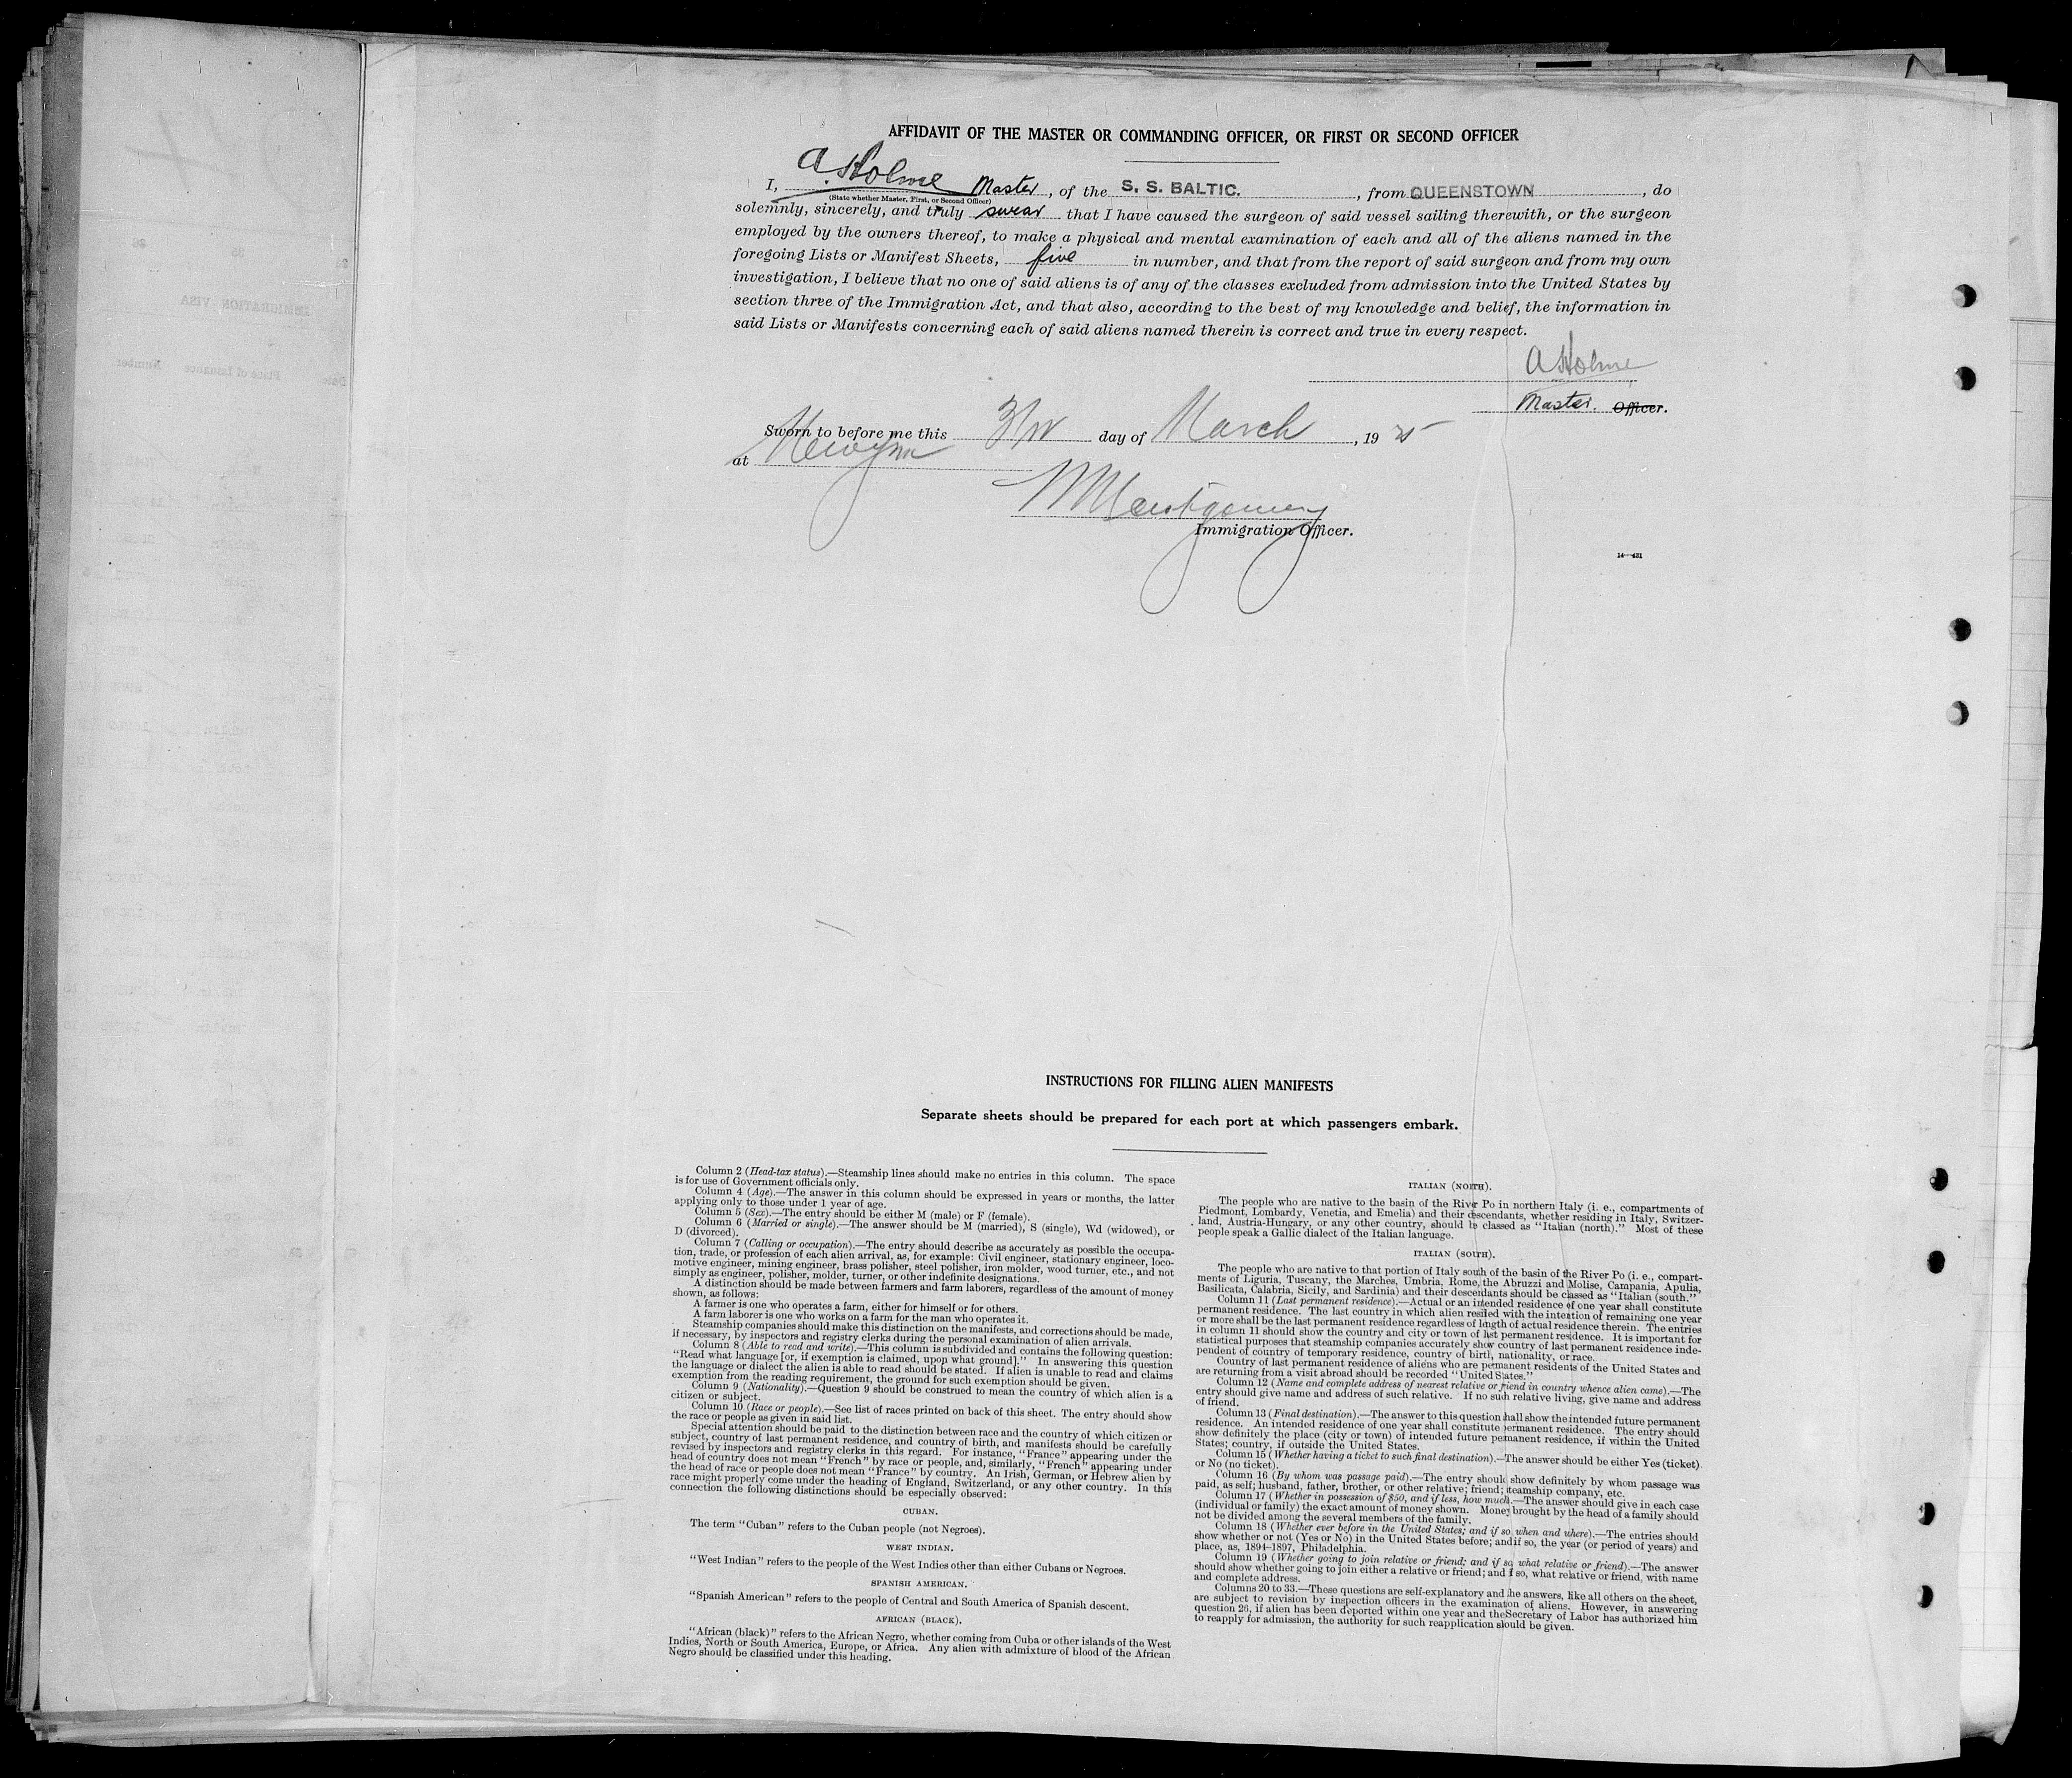 AFFIDAVIT OF THE MASTER OR COMMANDING OFFICER, OR FIRST OR SECOND OFFICER
I, A. Holme Master, of the S. S. BALTIC., from QUEENSTOWN, do
(State whether Master, First, or Second Officer)
solemnly, sincerely, and truly swear that I have caused the surgeon of said vessel sailing therewith, or the surgeon
employed by the owners thereof, to make a physical and mental examination of each and all of the aliens named in the
foregoing Lists or Manifest Sheets, five in number, and that from the report of said surgeon and from my own
investigation, I believe that no one of said aliens is of any of the classes excluded from admission into the United States by
section three of the Immigration Act, and that also, according to the best of my knowledge and belief, the information in
said Lists or Manifests concerning each of said aliens named therein is correct and true in every respect.
A Holme
Master. Officer.
Sworn to before me this day of March, 19 25
at
Montgomery
Immigration Officer.
14—431
INSTRUCTIONS FOR FILLING ALIEN MANIFESTS
Separate sheets should be prepared for each port at which passengers embark.
Column 2 (Head-tax status).—Steamship lines should make no entries in this column. The space
is for use of Government officials only.
Column 4 (Age).—The answer in this column should be expressed in years or months, the latter
applying only to those under 1 year of age.
Column 5 (Sex).—The entry should be either M (male) or F (female).
Column 6 (Married or single).—The answer should be M (married), S (single), Wd (widowed), or
D (divorced).
Column 7 (Calling or occupation).—The entry should describe as accurately as possible the occupa-
tion, trade, or profession of each alien arrival, as, for example: Civil engineer, stationary engineer, loco-
motive engineer, mining engineer, brass polisher, steel polisher, iron molder, wood turner, etc., and not
simply as engineer, polisher, molder, turner, or other indefinite designations.
A distinction should be made between farmers and farm laborers, regardless of the amount of money
shown, as follows:
A farmer is one who operates a farm, either for himself or for others.
A farm laborer is one who works on a farm for the man who operates it.
Steamship companies should make this distinction on the manifests, and corrections should be made,
if necessary, by inspectors and registry clerks during the personal examination of alien arrivals.
Column 8 (Able to read and write).—This column is subdivided and contains the following question:
"Read what language [or, if exemption is claimed, upon what ground]." In answering this question
the language or dialect the alien is able to read should be stated. If alien is unable to read and claims
exemption from the reading requirement, the ground for such exemption should be given.
Column 9 (Nationality).—Question 9 should be construed to mean the country of which alien is a
citizen or subject.
Column 10 (Race or people).—See list of races printed on back of this sheet. The entry should show
the race or people as given in said list.
Special attention should be paid to the distinction between race and the country of which citizen or
subject, country of last permanent residence, and country of birth, and manifests should be carefully
revised by inspectors and registry clerks in this regard. For instance, "France" appearing under the
head of country does not mean "French" by race or people, and, similarly, "French" appearing under
the head of race or people does not mean "France" by country. An Irish, German, or Hebrew alien by
race might properly come under the heading of England, Switzerland, or any other country. In this
connection the following distinctions should be especially observed:
CUBAN.
The term "Cuban" refers to the Cuban people (not Negroes).
WEST INDIAN.
"West Indian" refers to the people of the West Indies other than either Cubans or Negroes.
SPANISH AMERICAN.
"Spanish American" refers to the people of Central and South America of Spanish descent.
AFRICAN (BLACK).
"African (black)" refers to the African Negro, whether coming from Cuba or other islands of the West
Indies, North or South America, Europe, or Africa. Any alien with admixture of blood of the African
Negro should be classified under this heading.
ITALIAN (NORTH).
The people who are native to the basin of the River Po in northern Italy (i. e., compartments of
Piedmont, Lombardy, Venetia, and Emelia) and their descendants, whether residing in Italy, Switzer-
land, Austria-Hungary, or any other country, should be classed as "Italian (north)." Most of these
people speak a Gallic dialect of the Italian language.
ITALIAN (SOUTH).
The people who are native to that portion of Italy south of the basin of the River Po (i. e., compart-
ments of Liguria, Tuscany, the Marches, Umbria, Rome, the Abruzzi and Molise, Campania, Apulia,
Basilicata, Calabria, Sicily, and Sardinia) and their descendants should be classed as "Italian (south."
Column 11 (Last permanent residence).—Actual or an intended residence of one year shall constitute
permanent residence. The last country in which alien resided with the intention of remaining one year
or more shall be the last permanent residence regardless of length of actual residence therein. The entries
in column 11 should show the country and city or town of last permanent residence. It is important for
statistical purposes that steamship companies accurately show country of last permanent residence inde-
pendent of country of temporary residence, country of birth, nationality, or race.
Country of last permanent residence of aliens who are permanent residents of the United States and
are returning from a visit abroad should be recorded "United States."
Column 12 (Name and complete address of nearest relative or friend in country whence alien came).—The
entry should give name and address of such relative. If no such relative living, give name and address
of friend.
Column 13 (Final destination).—The answer to this question shall show the intended future permanent
residence. An intended residence of one year shall constitute permanent residence. The entry should
show definitely the place (city or town) of intended future permanent residence, if within the United
States; country, if outside the United States.
Column 15 (Whether having a ticket to such final destination).—The answer should be either Yes (ticket)
or No (no ticket).
Column 16 (By whom was passage paid).—The entry should show definitely by whom passage was
paid, as self; husband, father, brother, or other relative; friend; steamship company, etc.
Column 17 (Whether in possession of $50, and if less, how much).—The answer should give in each case
(individual or family) the exact amount of money shown. Money brought by the head of a family should
not be divided among the several members of the family.
Column 18 (Whether ever before in the United States; and if so, when and where).—The entries should
show whether or not (Yes or No) in the United States before; and if so, the year (or period of years) and
place, as, 1894–1897, Philadelphia.
Column 19 (Whether going to join relative or friend; and if so, what relative or friend).—The answer
should show whether going to join either a relative or friend; and if so, what relative or friend, with name
and complete address.
Columns 20 to 33.—These questions are self-explanatory and the answers, like all others on the sheet,
are subject to revision by inspection officers in the examination of aliens. However, in answering
question 26, if alien has been deported within one year and the Secretary of Labor has authorized him
to reapply for admission, the authority for such reapplication should be given.